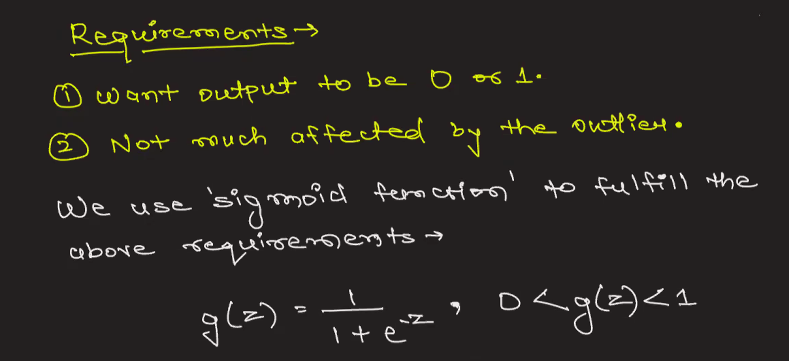 Requirements →
① Want output to be 0 or 1.
② Not much affected by the outlier.
We use 'sigmoid function' to fulfill the
above requirements →
g(z) = 1 / (1 + e^-z) , 0 < g(z) < 1